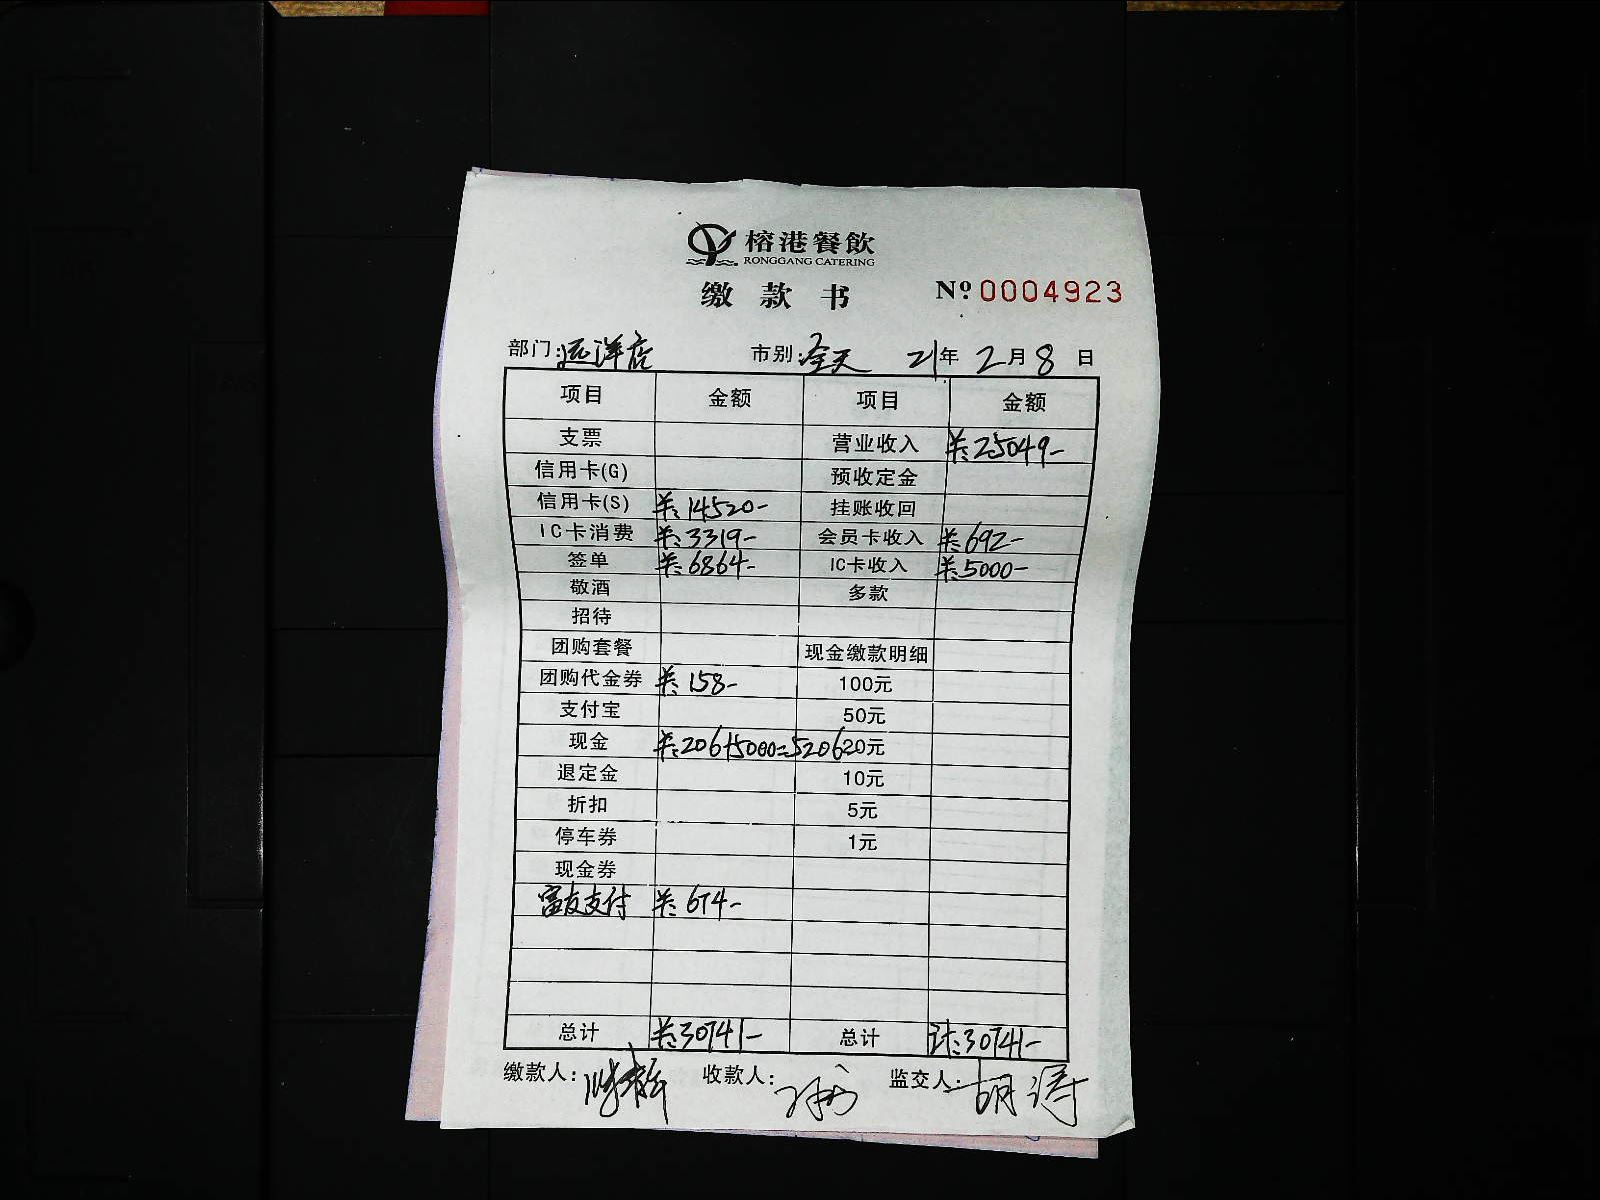 榕港餐飲
RONGGANG CATERING
缴款书 Nº 0004923
部门:远洋店 市别:全天 21年2月8日
项目 金额 项目 金额
支票 营业收入 ¥:25049-
信用卡(G) 预收定金
信用卡(S) ¥:14520- 挂账收回
IC卡消费 ¥:3319- 会员卡收入 ¥:692-
签单 ¥:6864- IC卡收入 ¥:5000-
敬酒 多款
招待
团购套餐 现金缴款明细
团购代金券 ¥:158- 100元
支付宝 50元
现金 ¥:206+5000=5206 20元
退定金 10元
折扣 5元
停车券 1元
现金券
富友支付 ¥:674-
总计 ¥:30741- 总计 计:30741-
缴款人: 收款人: 监交人:胡涛